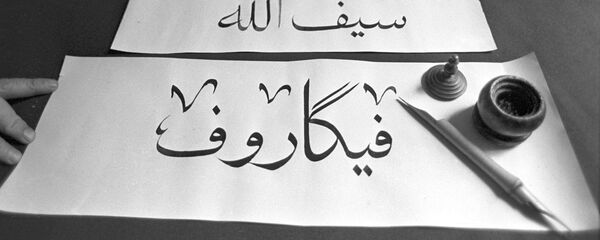 سيف الله
فيگاروف